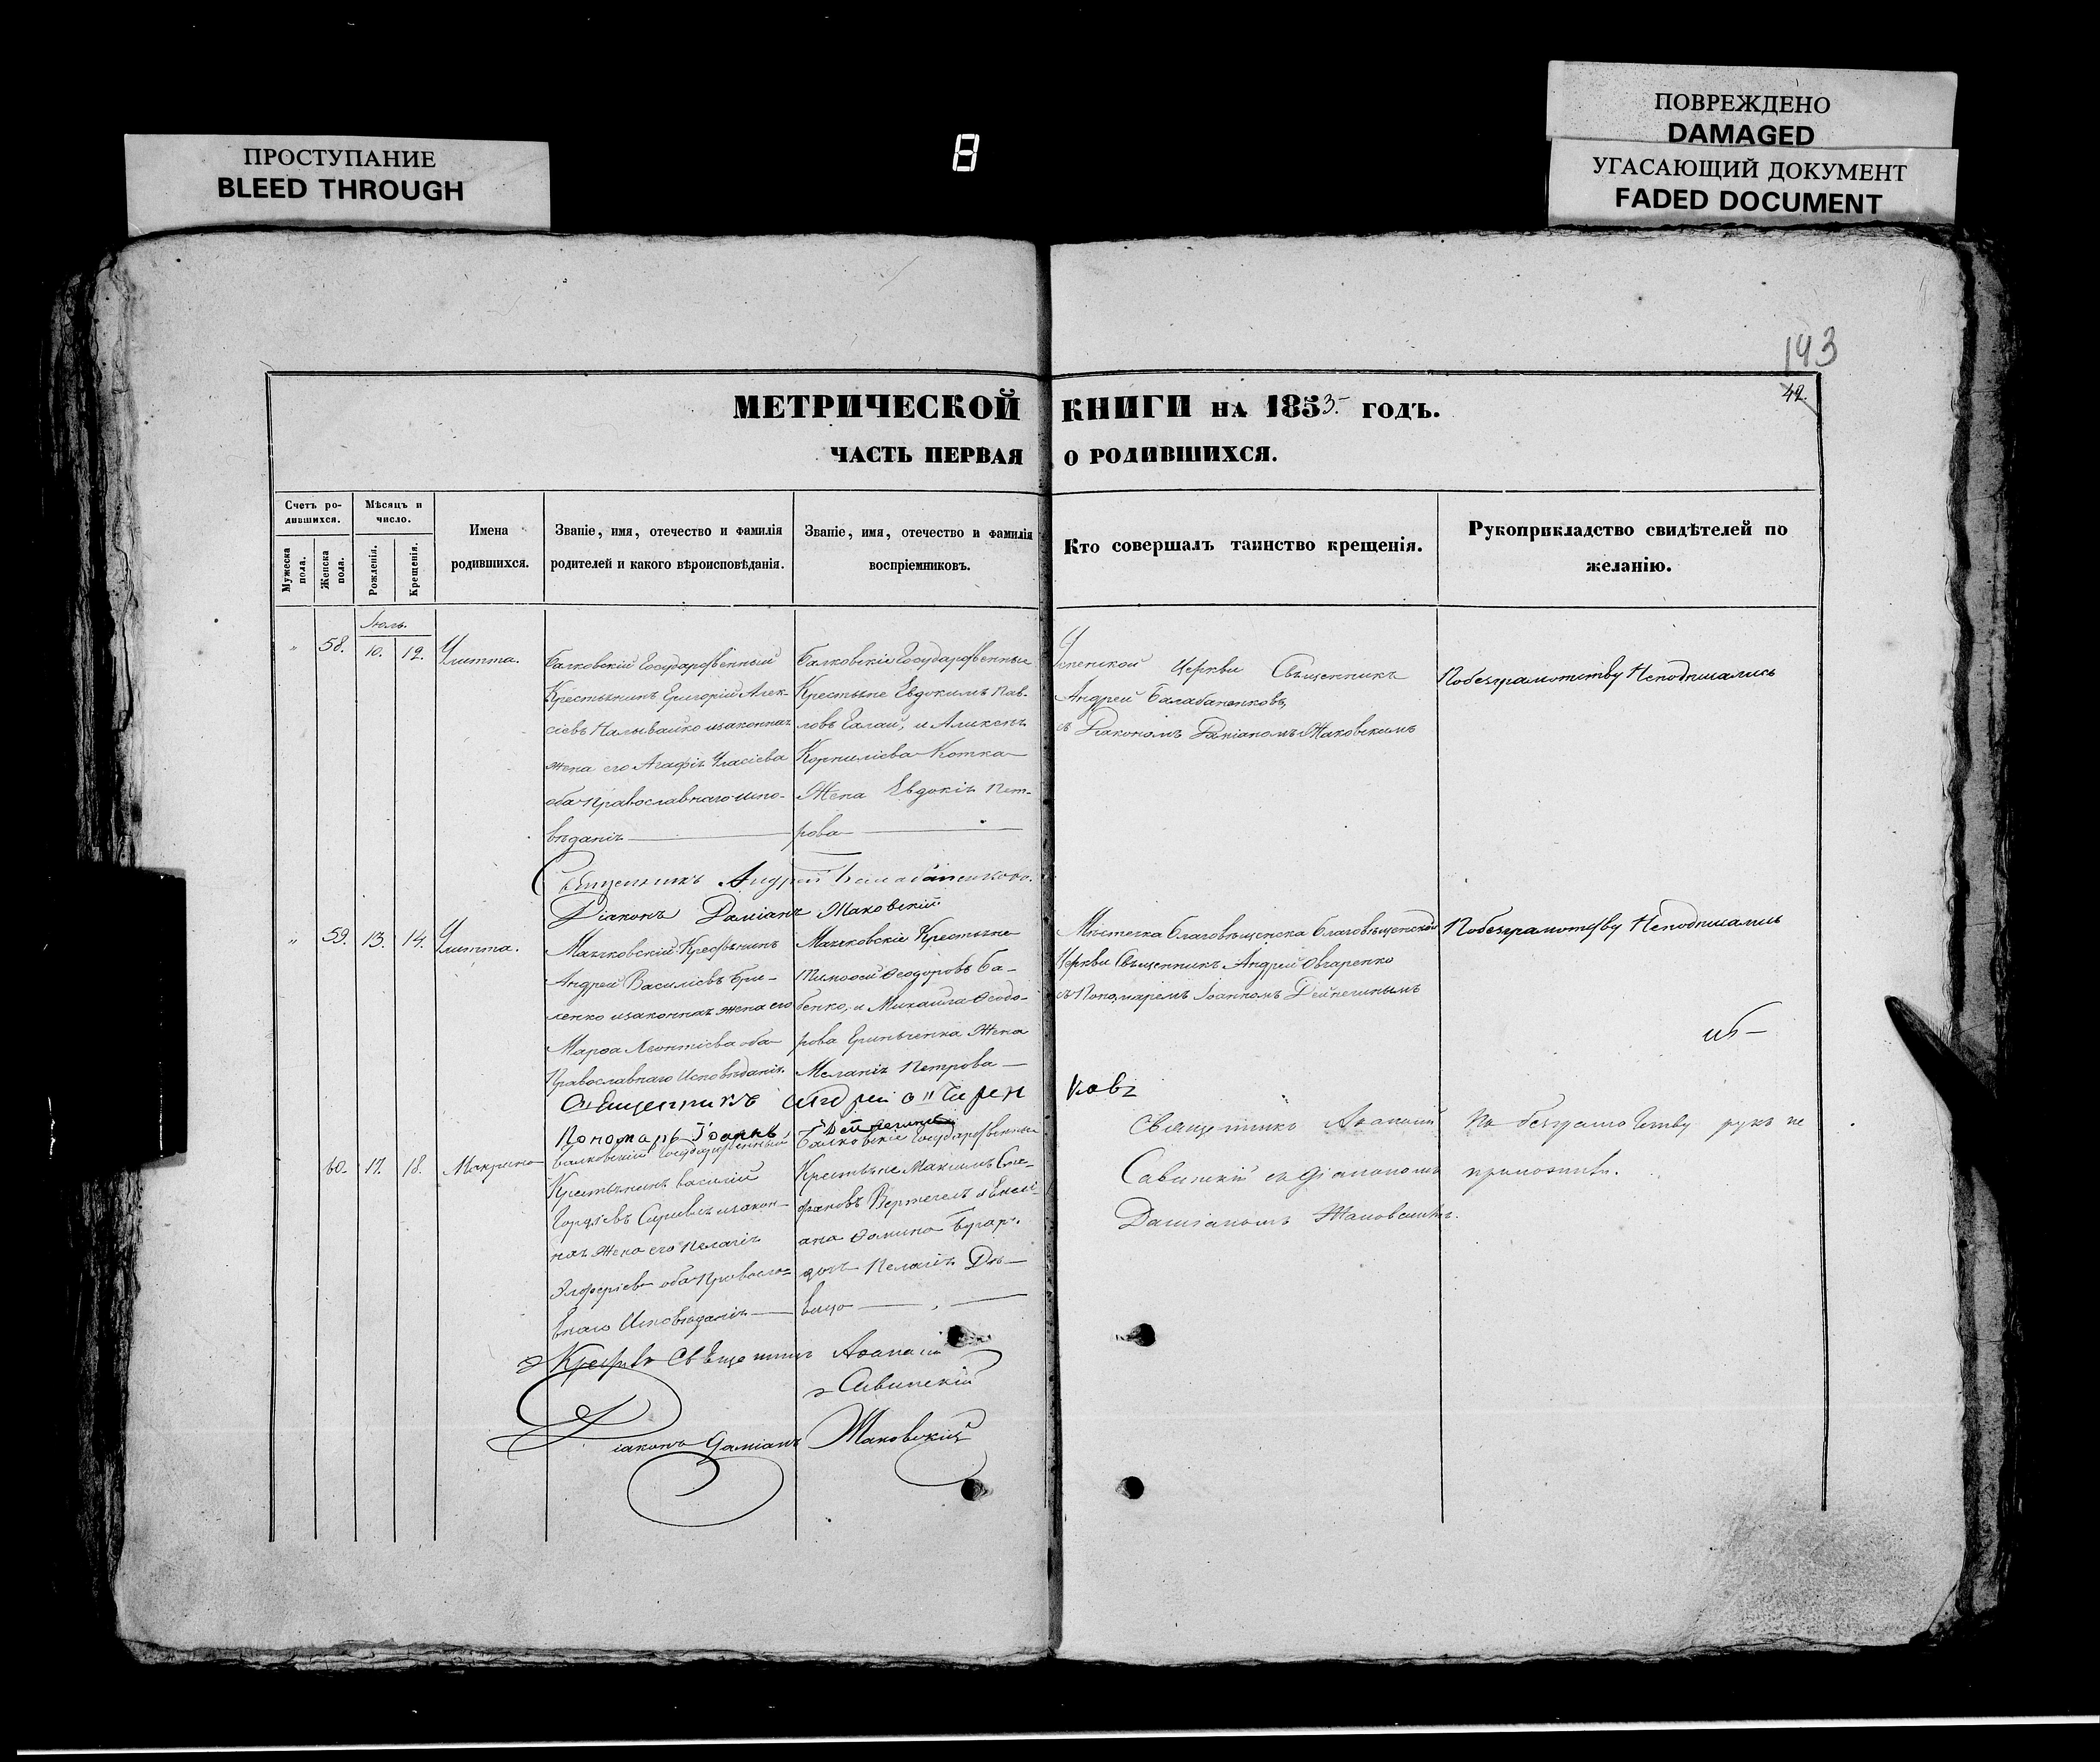 ПРОСТУПАНИЕ
BLEED THROUGH
8
ПОВРЕЖДЕНО
DAMAGED
УГАСАЮЩИЙ ДОКУМЕНТ
FADED DOCUMENT
143
42.
МЕТРИЧЕСКОЙ КНИГИ на 1853 годъ.
ЧАСТЬ ПЕРВАЯ О РОДИВШИХСЯ.
Счетъ родившихся.
Мужеска пола.
Женска пола.
Мѣсяцъ и число.
Рожденія.
Крещенія.
Имена родившихся.
Званіе, имя, отечество и фамилія
родителей и какого вѣроисповѣданія.
Званіе, имя, отечество и фамилія
воспріемниковъ.
Кто совершалъ таинство крещенія.
Рукоприкладство свидѣтелей по
желанію.
Іюль.
58. 10. 12. Улитта.
Балковскій Государственный
Крестьянинъ Григорій Алек-
сіевъ Наливайко изаконная
жена его Агафія Уласіева
оба Православнаго испо-
вѣданія
Балковскіе Государственные
Крестьяне Евдокимъ Пав-
ловъ Галай, и
Корниліева Котка
Жена Евдокія Пет-
рова
Церкви Священникъ
Андрей Балабаненковъ,
съ Діакономъ Даміаномъ Жаковскимъ
Побезграмотству Неподписались
Священникъ Андрей
Діаконъ Даміанъ Жаковскій
59. 13. 14. Улитта.
Крестьянинъ
Андрей Василіевъ Гри-
ленко изаконная жена его
Марѳа Леонтіева оба
Православнаго Исповѣданія
Крестьяне
Тимоѳей Ѳеодоровъ Ба-
бенко, и Михаила Ѳеодо-
рова Гринченка Жена
Меланія Петрова
Мѣстечка Благовѣщенска Благовѣщенской
Церкви Священникъ Андрей Овчаренко
съ Пономаремъ Іоанномъ
Побезграмотству Неподписались
Священникъ
ковъ
Пономарь Іоаннъ
60. 17. 18. Макрина
Балковскій Государственный
Крестьянинъ Василій
изакон-
ная Жена его Пелагія
оба Правосла-
внаго Исповѣданія
Балковскіе Государственные
Крестьяне Максимъ Сте-
фановъ
Ѳомина
дочь Пелагія Дѣ-
вица
Священникъ Аѳанасій
Савинскій съ Діакономъ
Даміаномъ Жаковскимъ.
По безграмотству рукъ не
приложили.
Священникъ Аѳанасій
Савинскій
Діаконъ Даміанъ Жаковскій